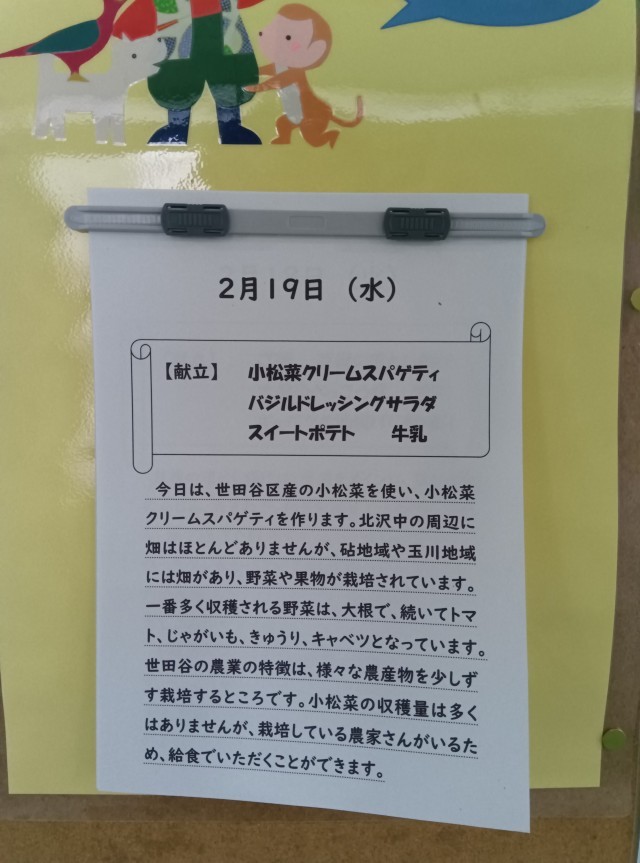 2月19日 (水)
【献立】 小松菜クリームスパゲティ
バジルドレッシングサラダ
スイートポテト 牛乳
今日は、世田谷区産の小松菜を使い、小松菜
クリームスパゲティを作ります。北沢中の周辺に
畑はほとんどありませんが、砧地域や玉川地域
には畑があり、野菜や果物が栽培されています。
一番多く収穫される野菜は、大根で、続いてトマ
ト、じゃがいも、きゅうり、キャベツとなっています。
世田谷の農業の特徴は、様々な農産物を少しず
す栽培するところです。小松菜の収穫量は多く
はありませんが、栽培している農家さんがいるた
め、給食でいただくことができます。